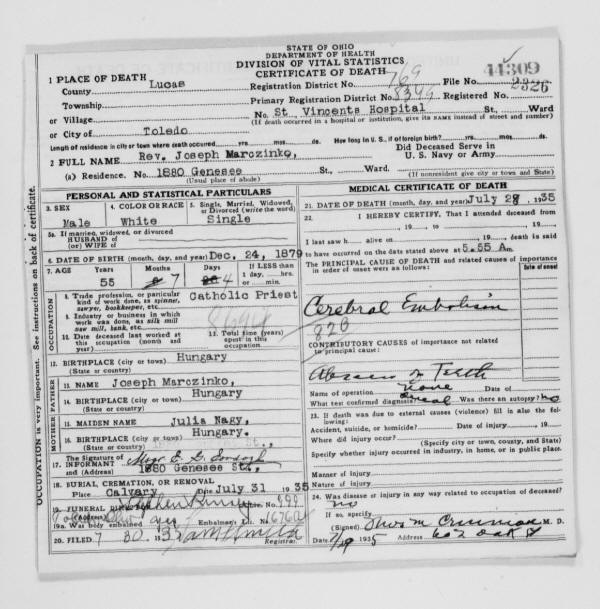 STATE OF OHIO
DEPARTMENT OF HEALTH
DIVISION OF VITAL STATISTICS
CERTIFICATE OF DEATH
1 PLACE OF DEATH
County Lucas Registration District No. 769 File No. 44309
Township Primary Registration District No. 8399 Registered No. 2326
or Village No. St. Vincents Hospital St., Ward
(If death occurred in a hospital or institution, give its NAME instead of street and number)
or City of Toledo
Length of residence in city or town where death occurred yrs. mos. ds. How long in U.S., if of foreign birth? yrs. mos. ds.
2 FULL NAME Rev. Joseph Marczinko, Did Deceased Serve in U. S. Navy or Army
(a) Residence. No. 1880 Genesee St., Ward.
(Usual place of abode) (If nonresident give city or town and State)
PERSONAL AND STATISTICAL PARTICULARS
3. SEX 4. COLOR OR RACE 5. Single, Married, Widowed, or Divorced (write the word)
Male White Single
5a. If married, widowed, or divorced
HUSBAND of
(or) WIFE of
6. DATE OF BIRTH (month, day, and year) Dec. 24, 1879
7. AGE Years Months Days If LESS than
1 day, hrs.
or min.
55 7 4
OCCUPATION
8. Trade, profession, or particular kind of work done, as spinner, sawyer, bookkeeper, etc. Catholic Priest
9. Industry or business in which work was done, as silk mill, saw mill, bank, etc.
10. Date deceased last worked at this occupation (month and year)
11. Total time (years) spent in this occupation
12. BIRTHPLACE (city or town) Hungary
(State or country)
FATHER
13. NAME Joseph Marczinko,
14. BIRTHPLACE (city or town) Hungary
(State or country)
MOTHER
15. MAIDEN NAME Julia Nagy,
16. BIRTHPLACE (city or town) Hungary.
(State or country)
17. The Signature of INFORMANT Msgr. E. G.
and (Address) 1880 Genesee St.,
18. BURIAL, CREMATION, OR REMOVAL
Place Calvary Date July 31 1935
19. FUNERAL DIRECTOR Stephen
(Address) Toledo Ohio
19a. Was body embalmed yes Embalmer's Lic. No. 676
20. FILED 7 30 1935
Registrar.
MEDICAL CERTIFICATE OF DEATH
21. DATE OF DEATH (month, day, and year) July 28, 1935
22. I HEREBY CERTIFY, That I attended deceased from
, 19 , to , 19
I last saw h alive on , 19 death is said
to have occurred on the date stated above at 5.55 A. m.
The PRINCIPAL CAUSE OF DEATH and related causes of importance in order of onset were as follows:
Date of onset
Cerebral Embolism
820
CONTRIBUTORY CAUSES of importance not related to principal cause:
Abscess in Teeth
Name of operation none Date of
What test confirmed diagnosis? Was there an autopsy? no
23. If death was due to external causes (violence) fill in also the following:
Accident, suicide, or homicide? Date of injury , 19
Where did injury occur?
(Specify city or town, county, and State)
Specify whether injury occurred in industry, in home, or in public place.
Manner of injury
Nature of injury
24. Was disease or injury in any way related to occupation of deceased?
no
If so, specify
(Signed) Thos M M. D.
Date 7/29 1935 Address 602 Oak St
OCCUPATION is very important. See instructions on back of certificate.